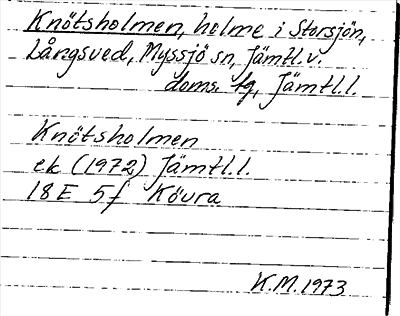 Knötsholmen, holme i Storsjön,
Långsved, Myssjö sn, Jämtl. v.
doms. tg, Jämtl. l.
Knötsholmen
ek (1972) Jämtl. l.
18E 5f Kövra
K.M. 1973